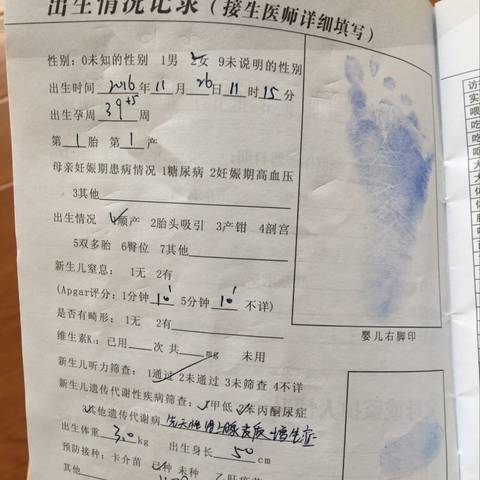 出生情况记录(接生医师详细填写)
性别:0未知的性别 1男 2女 9未说明的性别
出生时间 2016 年 11 月 26 日 11 时 15 分
出生孕周 39+5 周
第 1 胎 第 1 产
母亲妊娠期患病情况 1糖尿病 2妊娠期高血压
3其他
出生情况 1顺产 2胎头吸引 3产钳 4剖宫
5双多胎 6臀位 7其他
新生儿窒息: 1无 2有
(Apgar评分:1分钟 10' 5分钟 10' 不详)
是否有畸形: 1无 2有
维生素K1:已用 次 共 mg 未用
新生儿听力筛查: 1通过 2未通过 3未筛查 4不详
新生儿遗传代谢性疾病筛查: 1甲低 2苯丙酮尿症
3其他遗传代谢病 先天性肾上腺皮质增生症
出生体重 3.0 kg 出生身长 50 cm
预防接种:卡介苗 已种 未种 乙肝疫苗
其他
婴儿右脚印
访
实
喂
吃
吃
呕
大
大
体
体